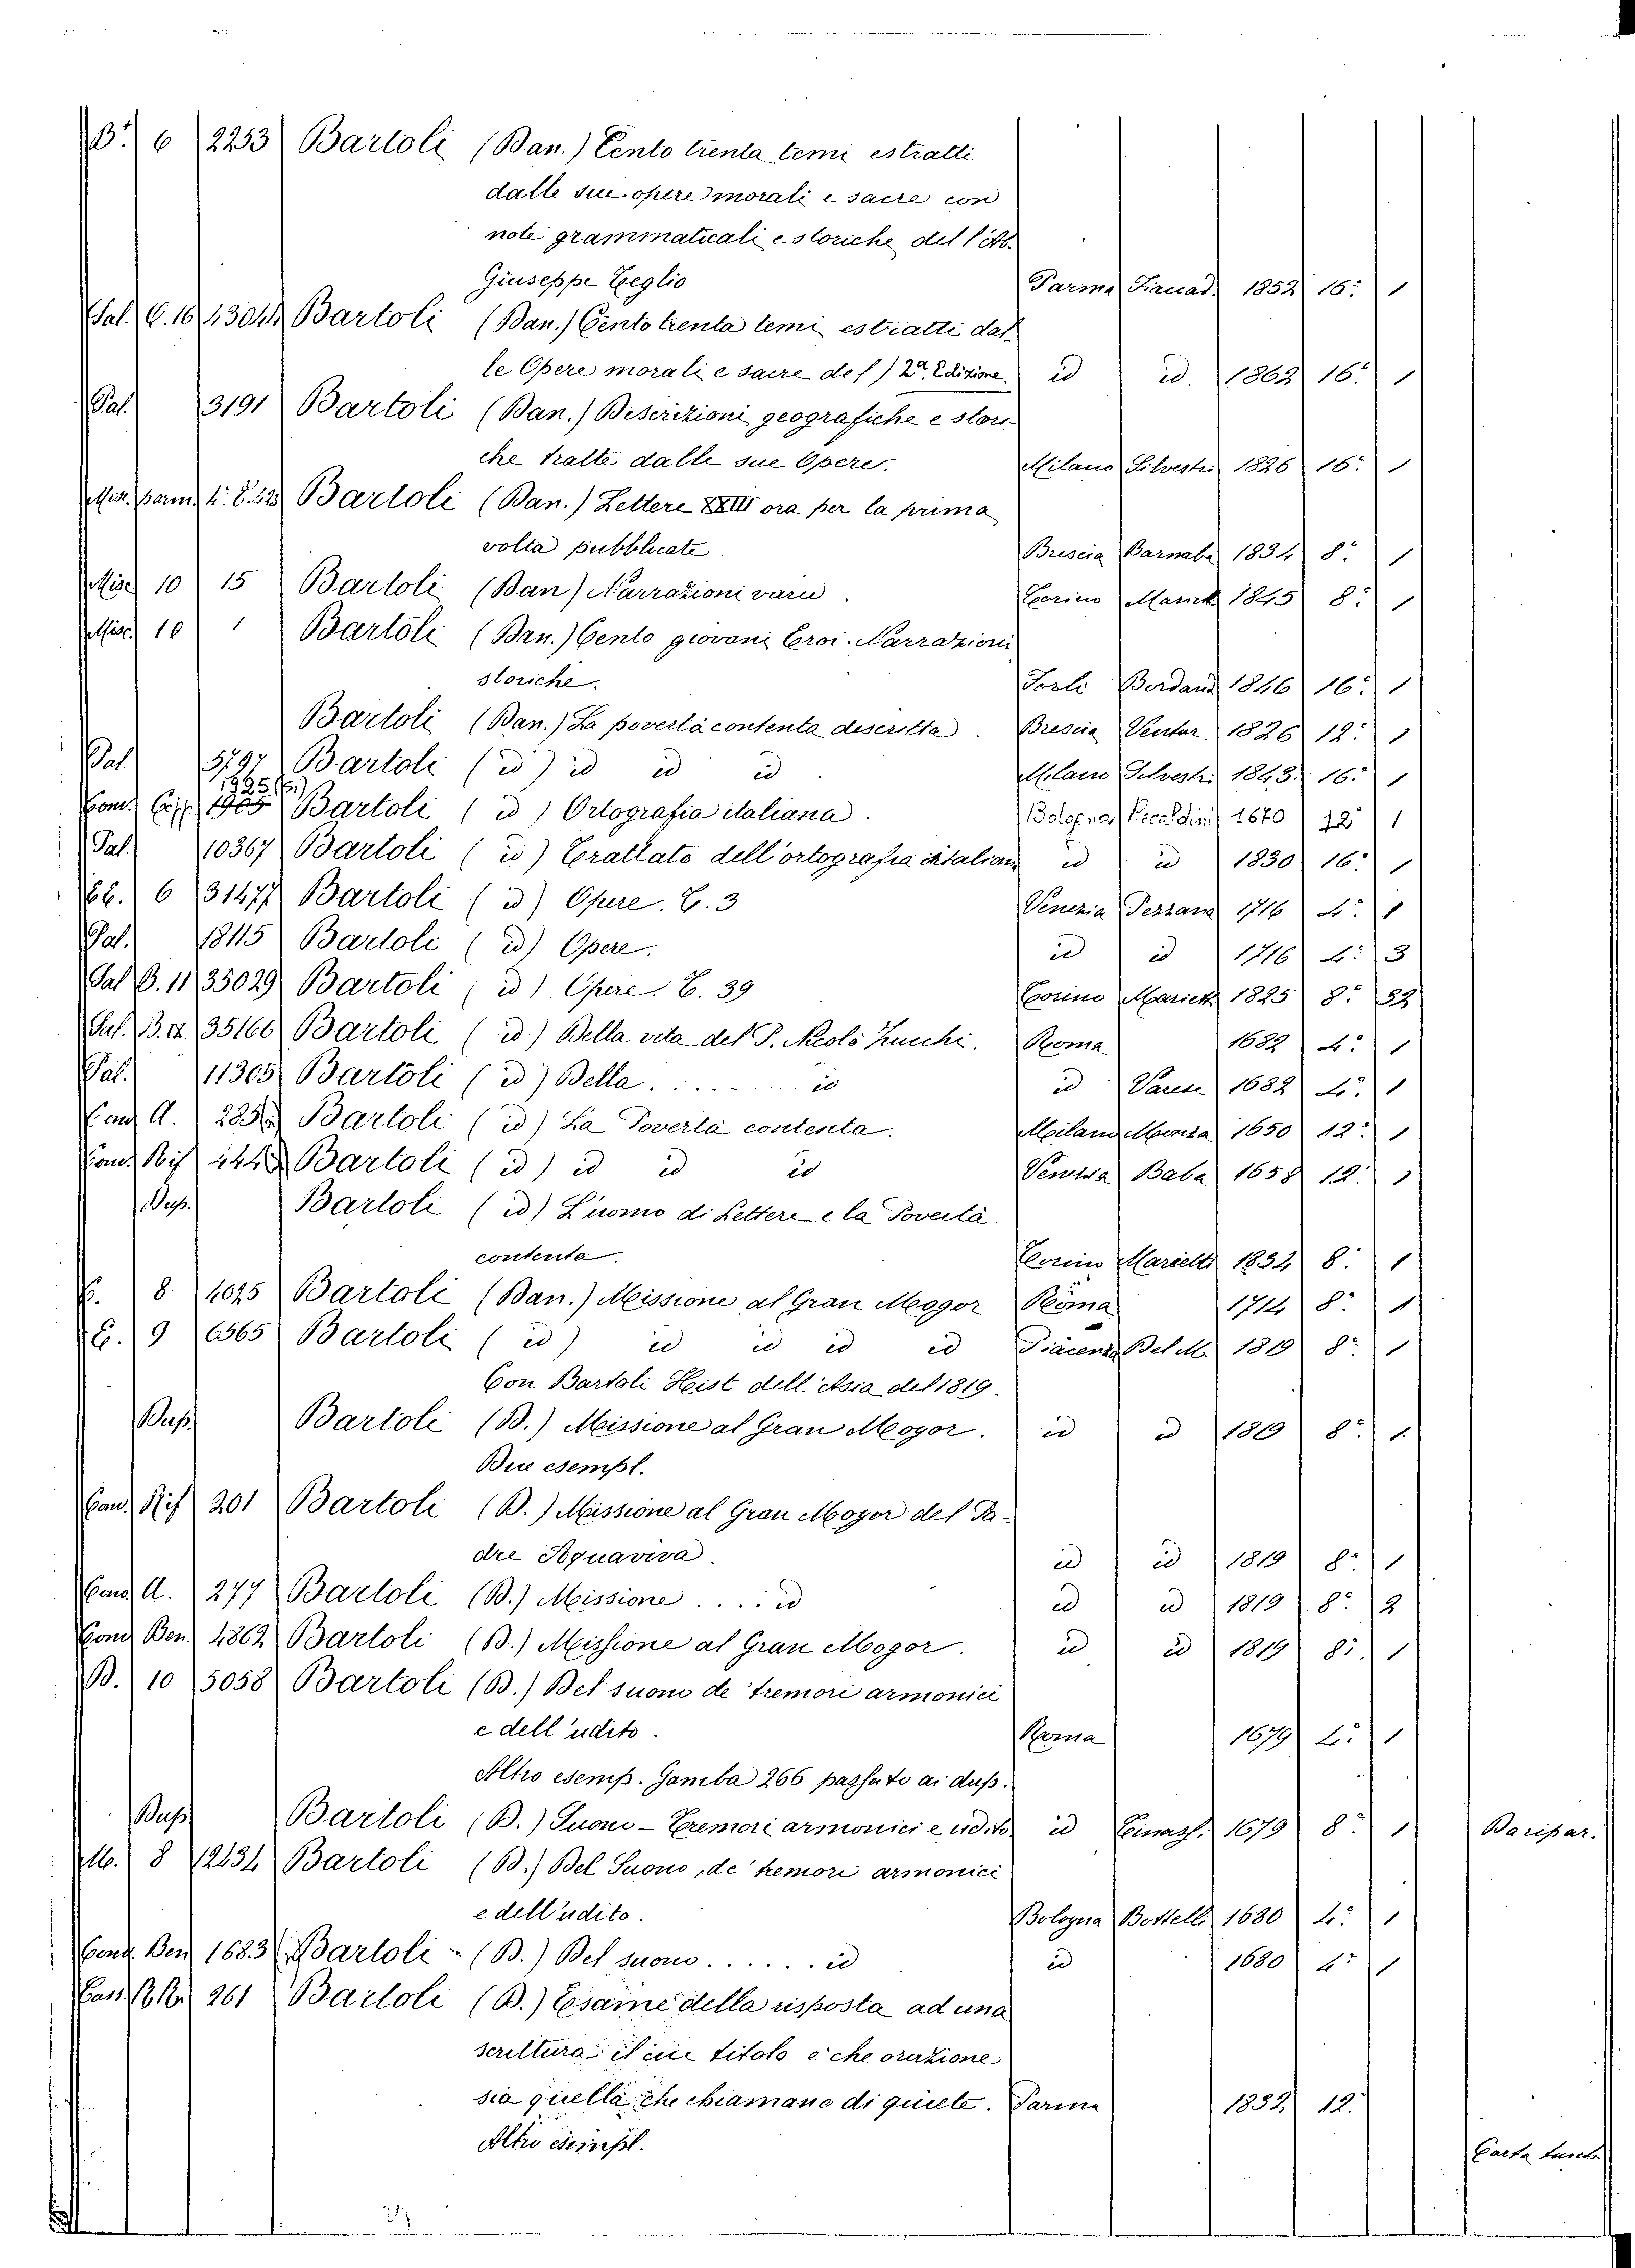 B. 6 2253 Bartoli (Dan.) Cento trenta temi estratti
dalle sue opere morali e sacre con
note grammaticali e storiche dell'Ab.
Giuseppe Teglio Parma Fiaccad. 1852 16: 1
Pal. C. 16 43044 Bartoli (Dan.) Cento trenta temi estratti dal
le Opere morali e sacre del ) 2ª Edizione. id id. 1862 16: 1
Pal. 3191 Bartoli (Dan.) Descrizioni geografiche e stori-
che tratte dalle sue Opere. Milano Silvestri 1826 16: 1
Misc. parm. 4. Bartoli (Dan.) Lettere XXIII ora per la prima
volta pubblicate. Brescia 1834 8: 1
Misc 10 15 Bartoli (Dan) Narrazioni varie. Torino Mariet 1845 8: 1
Misc 10 1 Bartoli (Dan.) Cento giovani Eroi. Narrazioni
storiche. Forlì Bordand 1846 16: 1
Bartoli (Dan.) La povertà contenta descritta. Brescia Ventur. 1826 12: 1
Pal 5797 Bartoli (id) id id id. Milano Silvestri 1843. 16: 1
Cond. Capp. 1905 Bartoli (id) Ortografia italiana. Bologna Recaldini 1670 12 1
Pal. 10367 Bartoli (id) Trattato dell'ortografia italiana id id 1830 16: 1
CC. 6 31477 Bartoli (id) Opere. T. 3 Venezia Pezzana 1716 4: 1
Pal. 18115 Bartoli (id) Opere. id id 1716 4: 3
Pal B. 11 35029 Bartoli (id) Opere. T. 39 Torino Mariett 1825 8: 39
Pal. B. 35166 Bartoli (id.) Della vita del P. Nicolò Zucchi. Roma 1682 4: 1
Pal. 11305 Bartoli (id) Della . . . . . . id id Varese 1682 4: 1
Cond A. Bartoli (id) La Povertà contenta. Milano Monza 1650 12: 1
Cond. Rif Bartoli (id) id id id Venezia Baba 1658 12: 1
Dup. Bartoli (id) L'uomo di Lettere e la Povertà
contenta. Torino Marietti 1834 8: 1
8 4025 Bartoli (Dan.) Missione al Gran Mogor Roma 1714 8: 1
C. 9 6565 Bartoli (id) id id id id Piacenza Del M. 1819 8: 1
Con Bartoli Hist dell'Asia del 1819.
Dup. Bartoli (D.) Missione al Gran Mogor. id id 1819 8: 1.
Due esempl.
Cond. Rif 201 Bartoli (D.) Missione al Gran Mogor del Pa-
dre Aquaviva. id id 1819 8: 1
Cond. A. 277 Bartoli (D.) Missione . . . . id id id 1819 8: 2
Cond Ben. 4862 Bartoli (D.) Missione al Gran Mogor. id id 1819 8: 1.
B. 10 5058 Bartoli (D.) Del suono de' tremori armonici
e dell'udito. Roma 1679 4: 1
Altro esemp. Gamba 266 passato ai dup.
Dup Bartoli (D.) Suono - Tremori armonici e udito id Tinass. 1679 8: 1 Baripar.
M. 8 12434 Bartoli (D.) Del Suono, de' tremori armonici
e dell'udito. Bologna Bottelli 1680 4: 1
Cond. Ben 1683 Bartoli - (D.) Del suono . . . . . . id id 1680 4: 1
261 Bartoli (D.) Esame della risposta ad una
scrittura il cui titolo è che orazione
sia quella che chiamano di quiete. Parma 1832 12.
Altro esempl. Carta